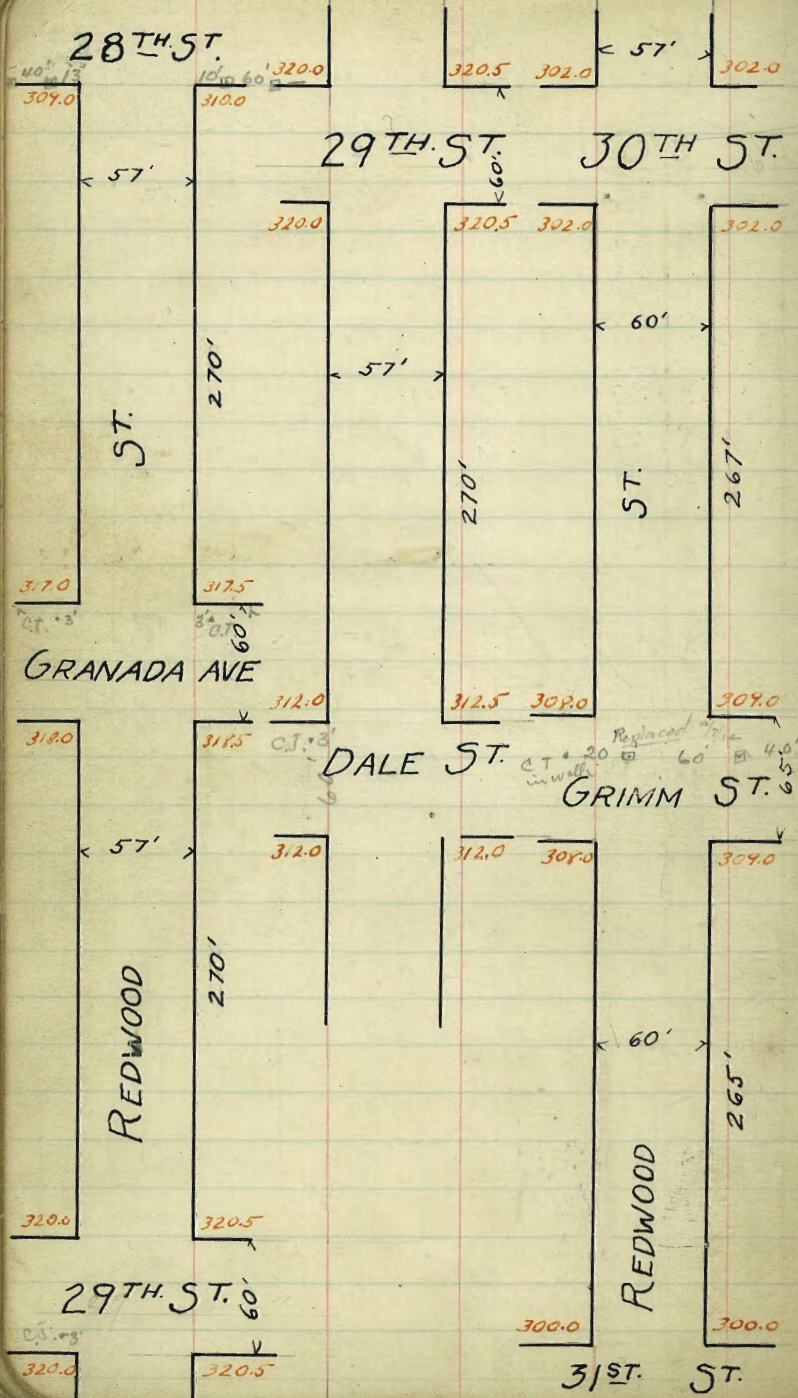 28TH ST.
57'
40' 13'
10' 60'
320.0
320.5
302.0
302.0
309.0
310.0
29TH. ST.
30TH ST.
60'
57'
320.0
320.5
302.0
302.0
60'
57'
270'
ST.
270'
ST.
267'
317.0
317.5
C.T. 3'
3' C.T.
60'
GRANADA AVE
312.0
312.5
308.0
309.0
318.0
318.5
C.T. 3'
DALE ST.
C T 20
Replaced
60'
40'
65'
GRIMM ST.
57'
312.0
312.0
308.0
309.0
270'
REDWOOD
60'
265'
REDWOOD
320.0
320.5
29TH. ST.
60'
300.0
300.0
320.0
320.5
31ST. ST.